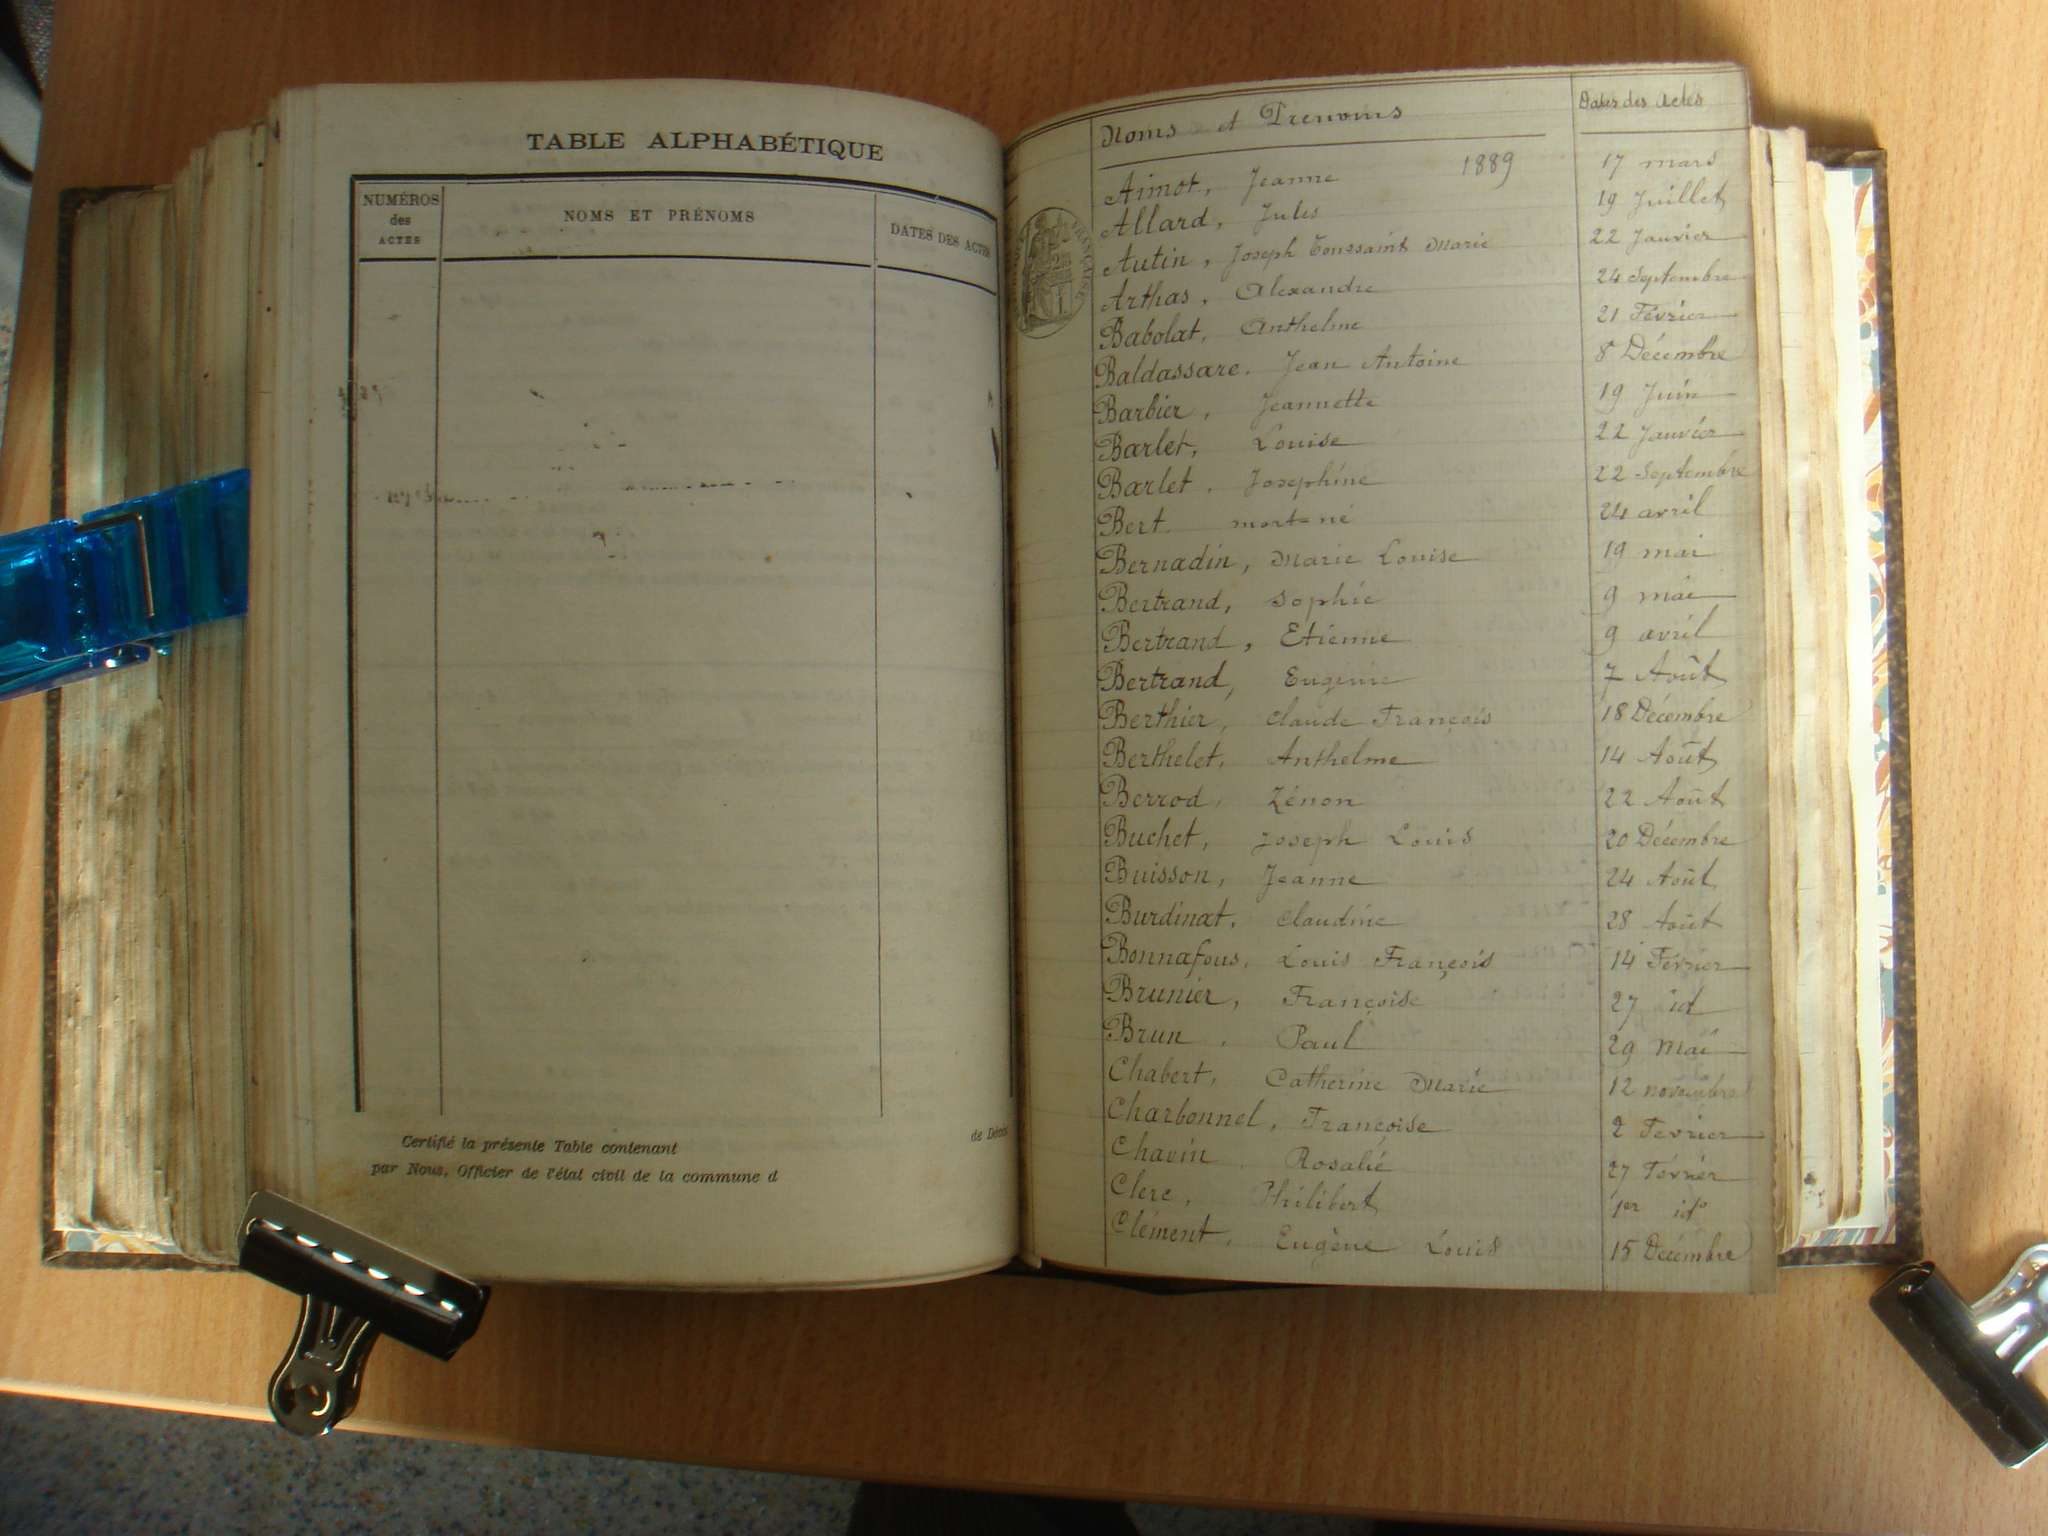 TABLE ALPHABÉTIQUE
NUMÉROS
des
ACTES
NOMS ET PRÉNOMS
DATES DES ACTES
Certifié la présente Table contenant de Décès
par Nous, Officier de l'état civil de la commune d
Noms et Prenoms Dates des Actes
Aimot, Jeanne 1889 17 mars
Allard, Jules 19 Juillet
Autin, Joseph Toussaint Marie 22 Janvier
Arthas, Alexandre 24 Septembre
Babolat, Anthelme 21 Février
Baldassare. Jean Antoine 8 Décembre
Barbier, Jeannette 19 Juin
Barlet, Louise 22 Janvier
Barlet. Josephine 22 Septembre
Bert mort-né 24 avril
Bernadin, Marie Louise 19 mai
Bertrand, Sophie 9 mai
Bertrand, Etienne 9 avril
Bertrand, Eugénie 7 Août
Berthier, Claude François 18 Décembre
Berthelet, Anthelme 14 Août
Berrod, Zénon 22 Août
Buchet, Joseph Louis 20 Décembre
Buisson, Jeanne 24 Août
Burdinat, Claudine 28 Août
Bonnafous, Louis François 14 Février
Brunier, Françoise 27 id
Brun, Paul 29 Mai
Chabert, Catherine Marie 12 novembre
Charbonnel, Françoise 2 Fevrier
Chavin Rosalie 27 Février
Clerc, Philibert 1er id
Clément, Eugène Louis 15 Decembre
FRANÇAISE